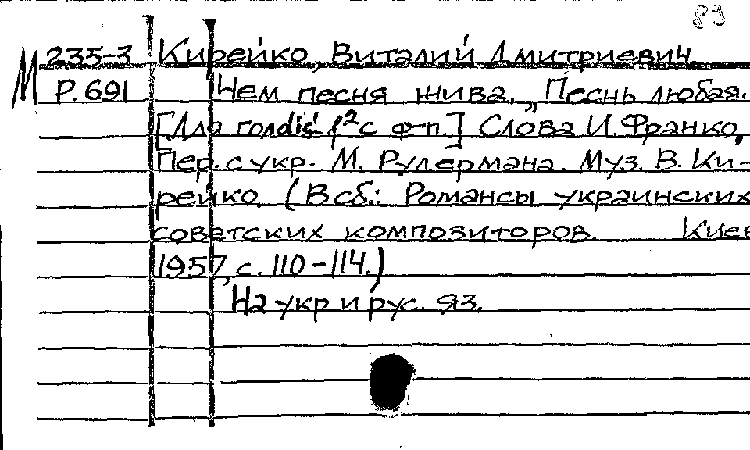 89
М 235-3 Кирейко, Виталий Дмитриевич
Р. 691 Чем песня жива. „Песнь любая.
[Для голоса с ф-п] Слова И. Франко,
Пер. с укр. М. Рудермана. Муз. В. Ки-
рейко. (В сб.: Романсы украинских
советских композиторов. Киев
1957, с. 110-114.)
На укр и рус. яз.